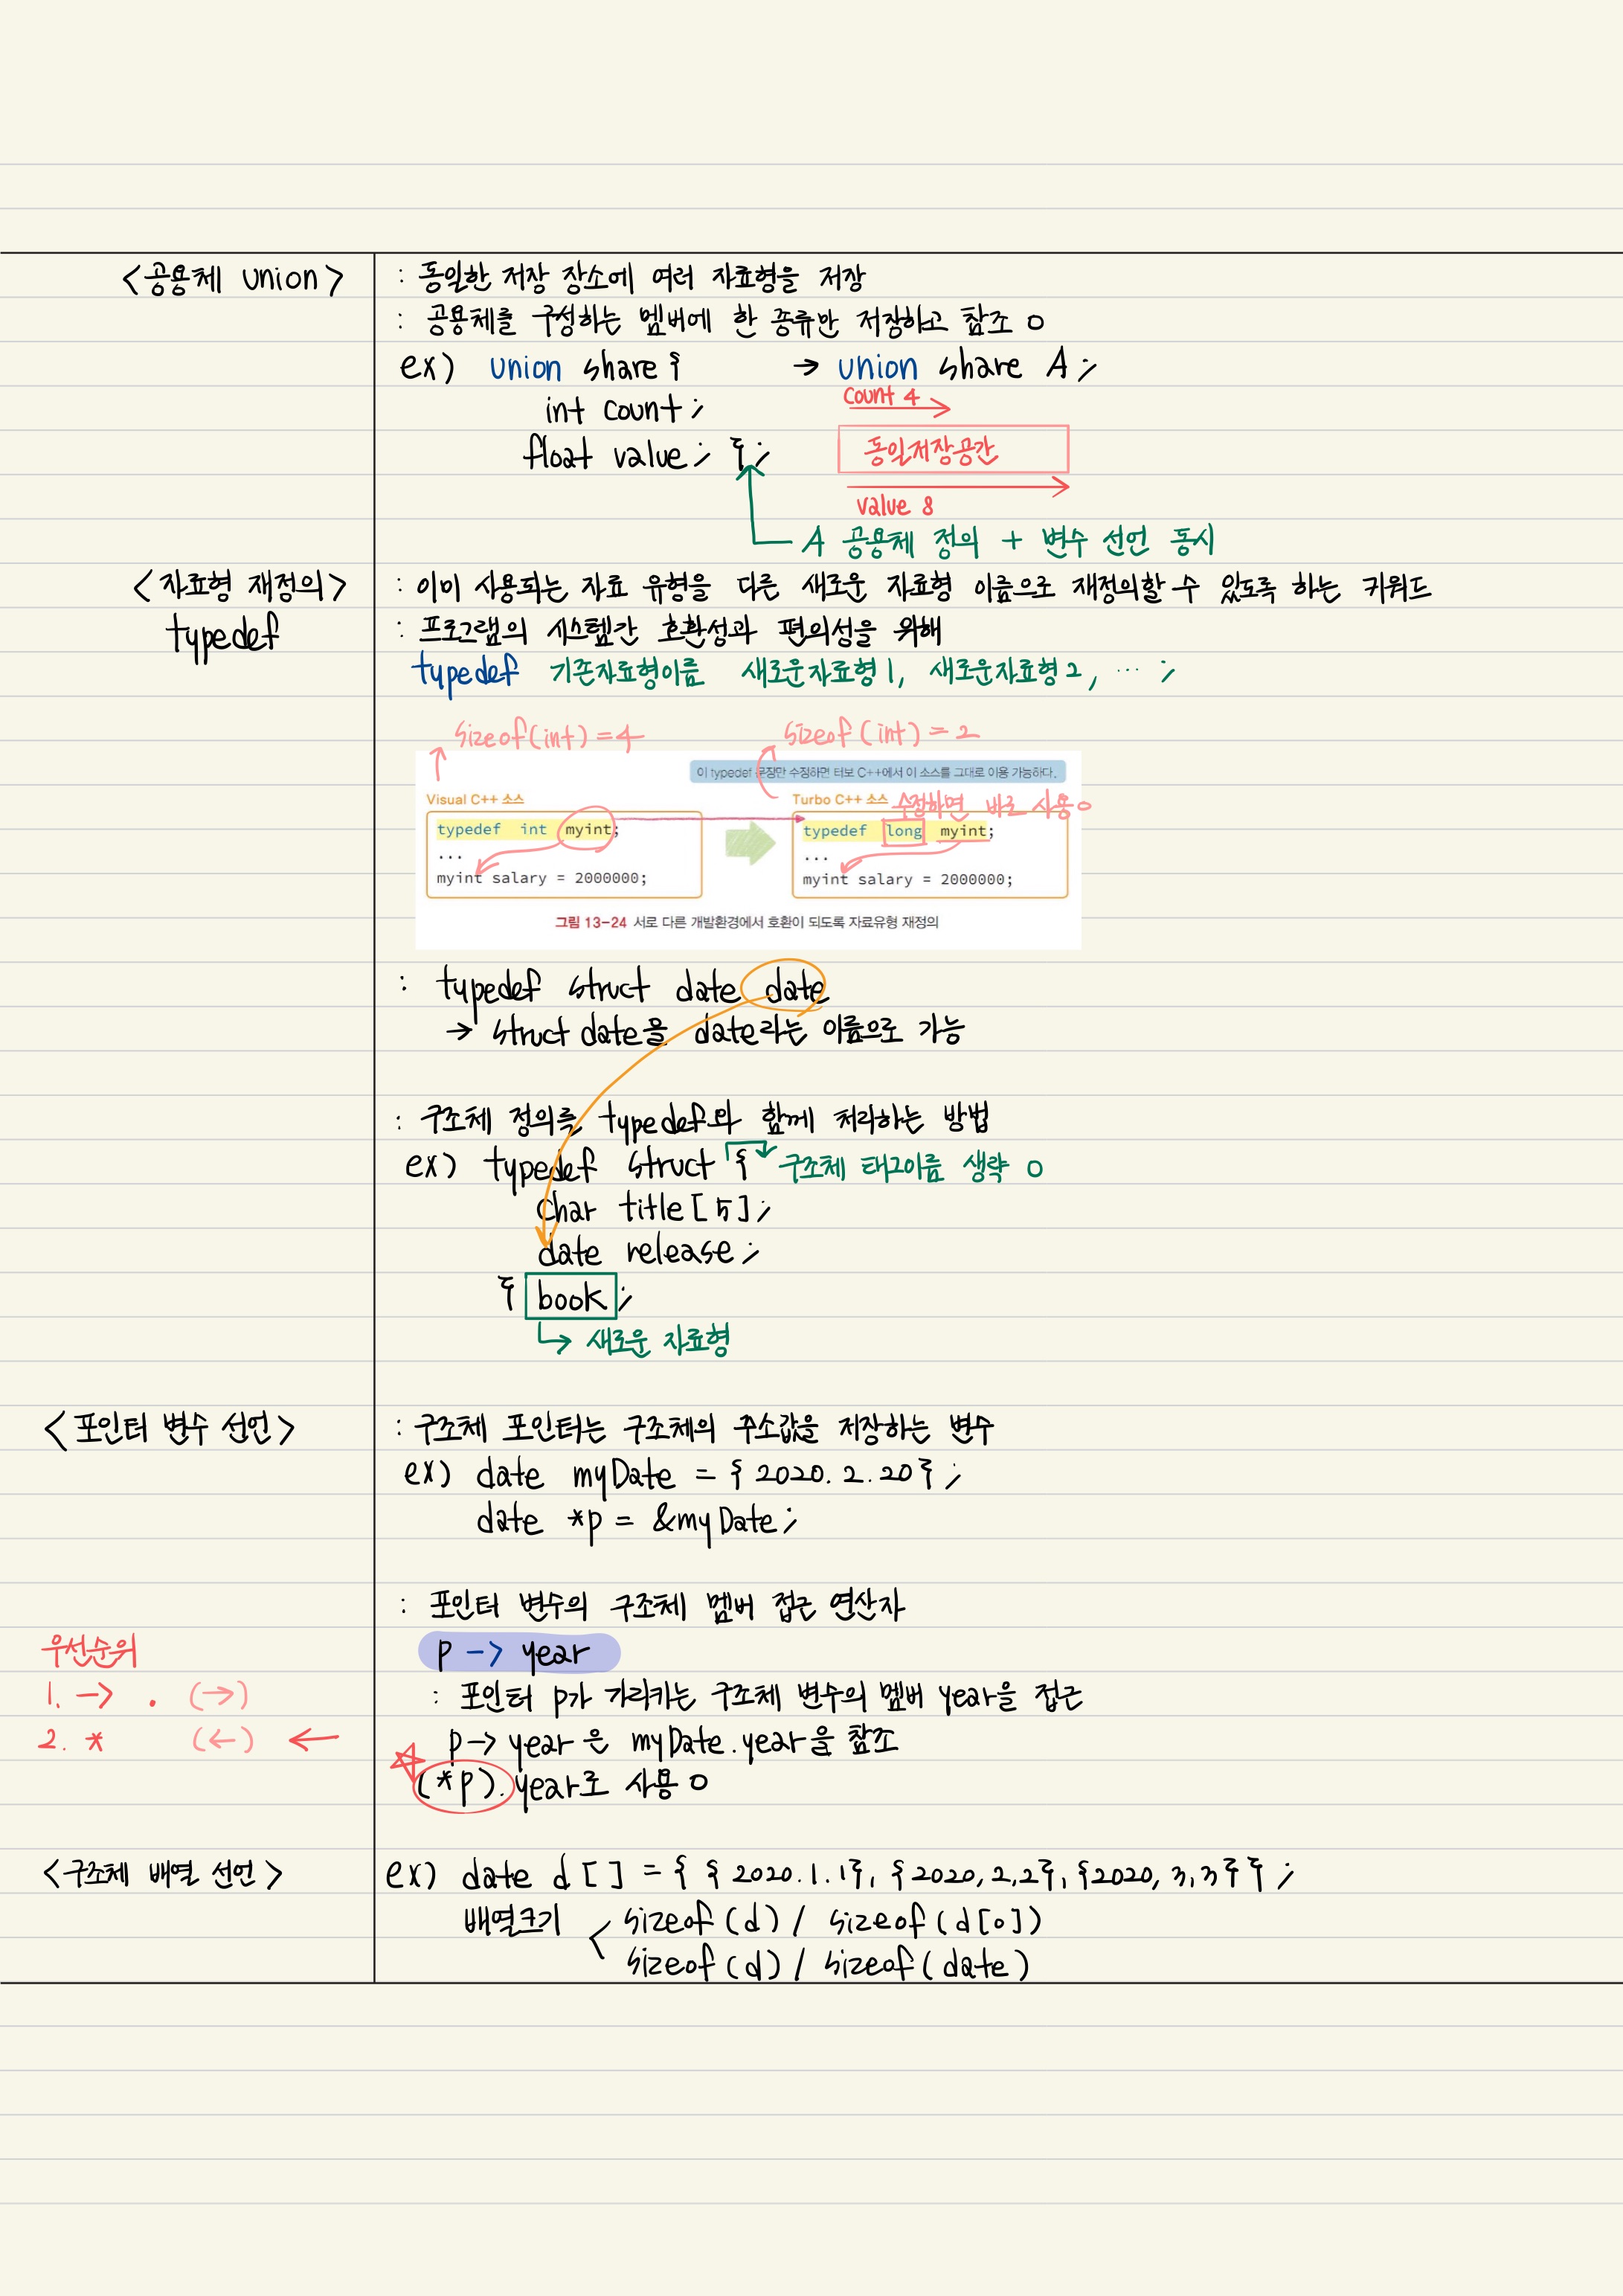 <공용체 union>
: 동일한 저장 장소에 여러 자료형을 저장
: 공용체를 구성하는 멤버에 한 종류만 저장하고 참조 O
ex) union share {
→ union share A;
int count;
count 4
float value; };
동일저장공간
value 8
A 공용체 정의 + 변수 선언 동시
<자료형 재정의>
typedef
: 이미 사용되는 자료 유형을 다른 새로운 자료형 이름으로 재정의할 수 있도록 하는 키워드
: 프로그램의 시스템간 호환성과 편의성을 위해
typedef 기존자료형이름 새로운자료형1, 새로운자료형2, ... ;
sizeof(int) = 4
sizeof(int) = 2
이 typedef 문장만 수정하면 터보 C++에서 이 소스를 그대로 이용 가능하다.
Visual C++ 소스
typedef int myint;
...
myint salary = 2000000;
Turbo C++ 소스
수정하면 바로 사용 O
typedef long myint;
...
myint salary = 2000000;
그림 13-24 서로 다른 개발환경에서 호환이 되도록 자료유형 재정의
: typedef struct date date
→ struct date을 date라는 이름으로 가능
: 구조체 정의를 typedef와 함께 처리하는 방법
ex) typedef struct {
구조체 태그이름 생략 O
char title[5];
date release;
} book;
↳ 새로운 자료형
<포인터 변수 선언>
: 구조체 포인터는 구조체의 주소값을 저장하는 변수
ex) date myDate = { 2020. 2. 20};
date *p = &myDate;
: 포인터 변수의 구조체 멤버 접근 연산자
p -> year
: 포인터 p가 가리키는 구조체 변수의 멤버 year을 접근
p -> year은 myDate.year을 참조
(*p).year로 사용 O
우선순위
1. -> . (→)
2. * (←) ←
<구조체 배열 선언>
ex) date d[] = { { 2020. 1. 1}, {2020, 2, 2}, {2020, 3, 3} };
배열크기 < sizeof(d) / sizeof(d[0])
sizeof(d) / sizeof(date)